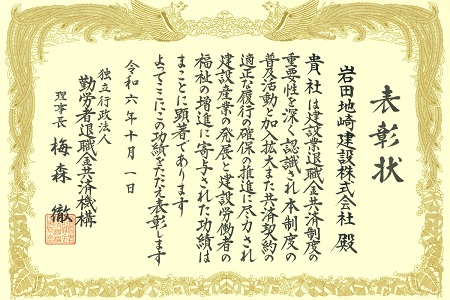 表彰状
岩田地崎建設株式会社 殿
貴社は建設業退職金共済制度の
重要性を深く認識され本制度の
普及活動と加入拡大また共済契約の
適正な履行の確保の推進に尽力され
建設産業の発展と建設労働者の
福祉の増進に寄与された功績は
まことに顕著であります
よってここにこの功績をたたえ表彰します
令和六年十月一日
独立行政法人
勤労者退職金共済機構
理事長 梅森 徹